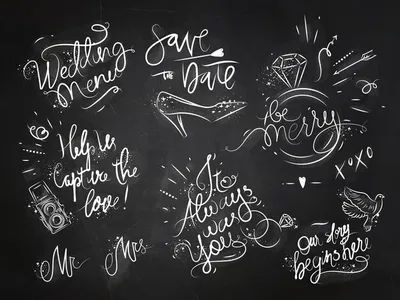 Wedding
Menu
Save
the Date
Be
Merry
Help us
Capture the
love!
XOXO
It
Always
was
You
Mr
Mrs
Our story
begins here